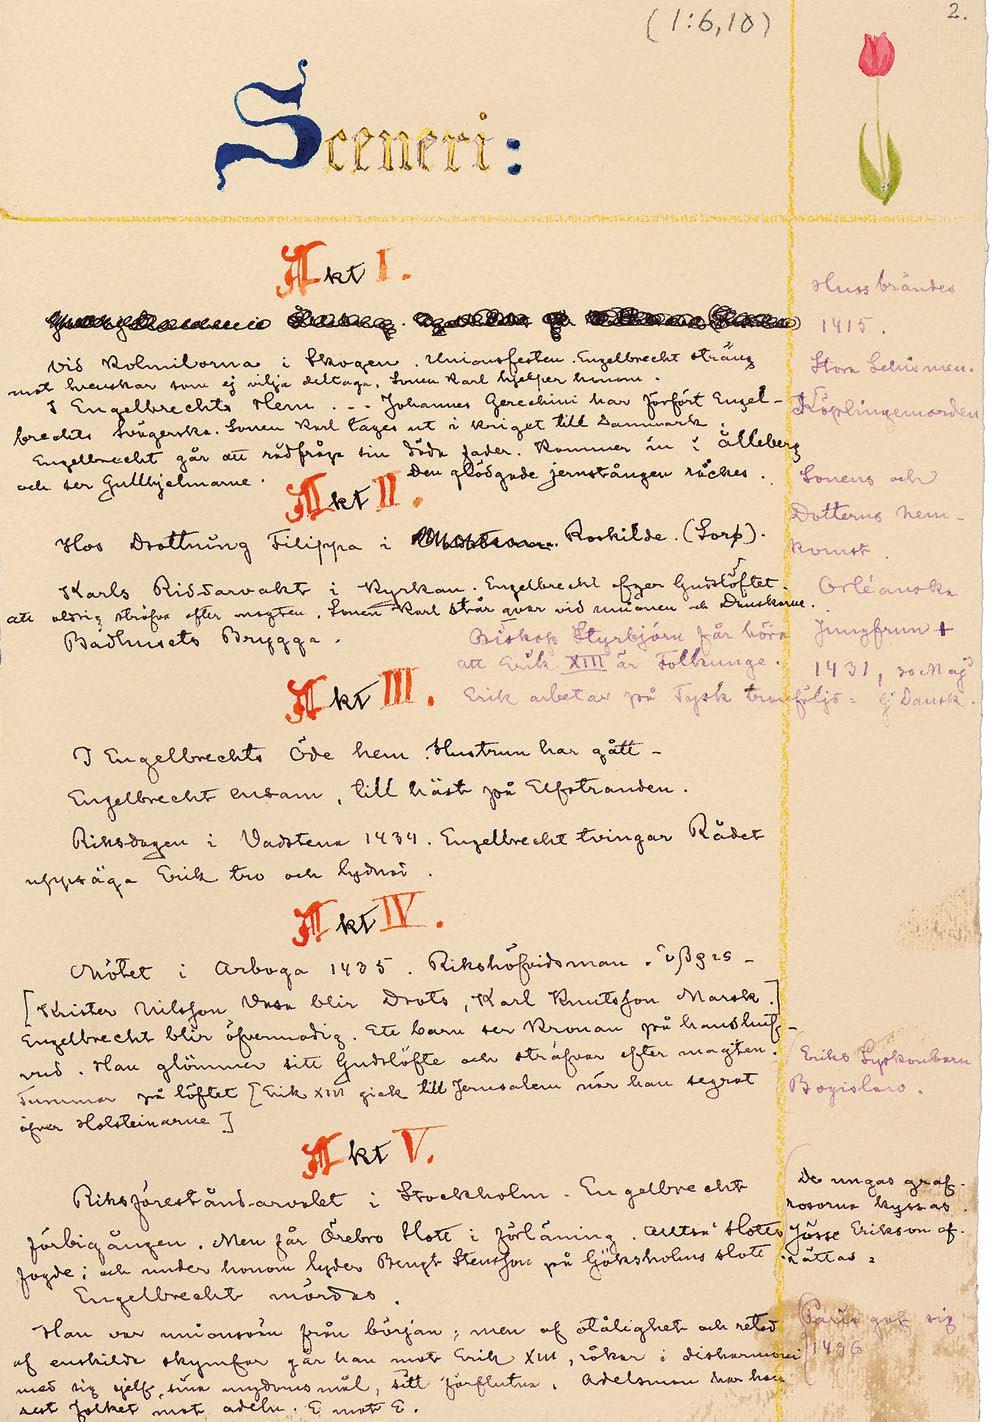 (1:6,10)
2.
Sceneri:
Akt I.
Vid Kolmilorna i Skogen. Unionsfesten. Engelbrecht sträng
mot Svenskar som ej vilja deltaga. Sonen Karl hjelper honom.
I Engelbrechts Hem ... Johannes Gerechini har förfört Engel-
brechts Svägerska. Sonen Karl tages ut i kriget till Danmark.
Engelbrecht går att rådfråga sin döda fader. Kommer in i Ålleberg
och ser Gullhjelmarne. Den glödgade jernstången räckes.
Huss brändes
1415.
Stora Schismen.
Köplingemorden
Sonens och
Dotterns hem-
komst.
Akt II.
Hos Drottning Filippa i Roskilde. (Sorø).
Karls Riddarvakt i Kyrkan. Engelbrecht afger Gudslöftet
att aldrig sträfva efter magten. Sonen Karl står qvar vid unionen och Danskarne.
Bådhusets Brygga.
Biskop Styrbjörn får höra
att Erik XIII är Folkunge.
Erik arbetar på Tysk tronföljd = ej Dansk.
Orléanska
Jungfrun +
1431, 30 Maj
Akt III.
I Engelbrechts Öde hem. Hustrun har gått -
Engelbrecht ensam, till häst på Elfstranden.
Riksdagen i Vadstena 1434. Engelbrecht tvingar Rådet
uppsäga Erik tro och lydnad.
Akt IV.
Mötet i Arboga 1435. Rikshöfvidsman.
[Krister Nilsson Vasa blir Drots, Karl Knutsson Marsk.]
Engelbrecht blir öfvermodig. Ett barn ser Kronan på hans huf-
vud. Han glömmer sitt Gudslöfte och sträfvar efter magten.
Tummar på löftet [Erik XIII gick till Jerusalem när han segrat
öfver Holsteinarne]
Eriks Syskonbarn
Bogislaw.
Akt V.
Riksföreståndarvalet i Stockholm. Engelbrecht
förbigången. Men får Örebro Slott i förläning. Alltså Slotts
fogde; och under honom lyder Bengt Stensson på Göksholms slott
Engelbrecht mördas.
Han var unionsvän från början; men af otålighet och retad
af enskilda skymfer går han mot Erik XIII, råkar i disharmoni
med sig sjelf, sina ungdomsmål, sitt förflutna. Adelsman har han
rest folket mot adeln. E mot E.
De ungas graf-
rosorna kyssas.
Jösse Erikson af-
rättas =
Paris gaf sig
1436